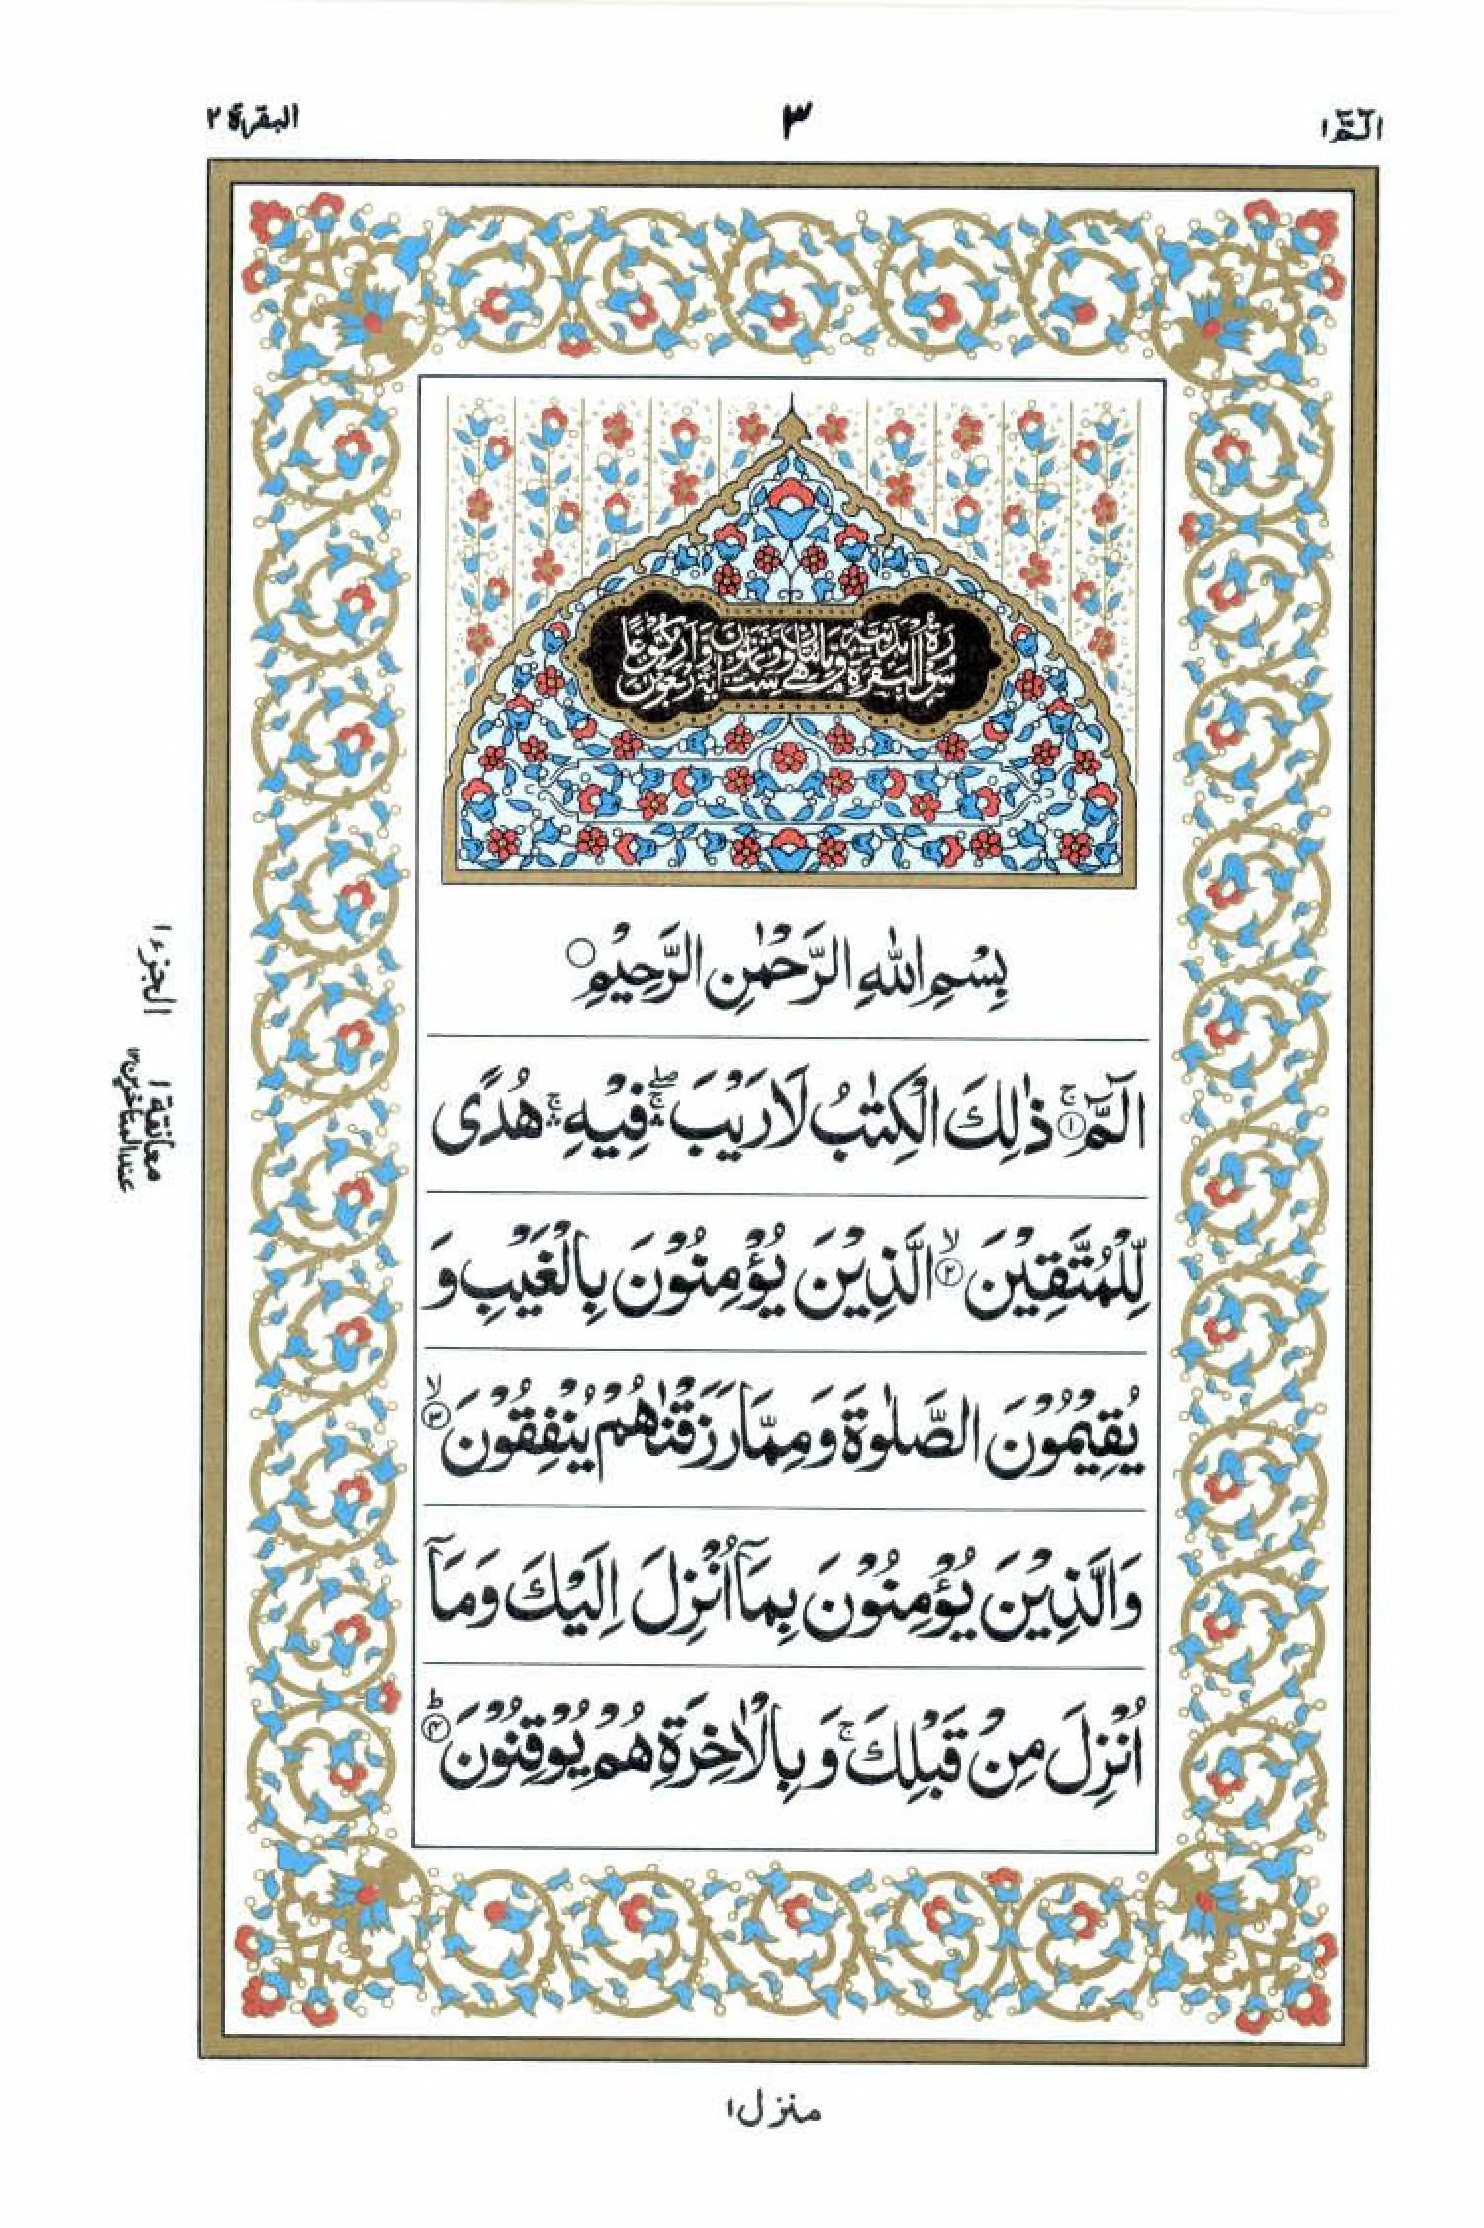 الٓمّٓ ١
٣
البقرة ٢
سورة البقرة مدنية وهي مائتان وست وثمانون آية وأربعون ركوعًا
بِسْمِ اللهِ الرَّحْمٰنِ الرَّحِيْمِ
الٓمّٓ ۚ﴿١﴾ ذٰلِكَ الْكِتٰبُ لَا رَيْبَ ۛۚۖ فِيْهِ ۛۚ هُدًى
لِّلْمُتَّقِيْنَ ۙ﴿٢﴾ الَّذِيْنَ يُؤْمِنُوْنَ بِالْغَيْبِ وَ
يُقِيْمُوْنَ الصَّلٰوةَ وَمِمَّا رَزَقْنٰهُمْ يُنْفِقُوْنَ ۙ﴿٣﴾
وَالَّذِيْنَ يُؤْمِنُوْنَ بِمَآ اُنْزِلَ اِلَيْكَ وَمَآ
اُنْزِلَ مِنْ قَبْلِكَ ۚ وَبِالْاٰخِرَةِ هُمْ يُوْقِنُوْنَ ؕ﴿٤﴾
الجزء ١
معانقة ١
عند المتأخرين ١٢
منزل ١